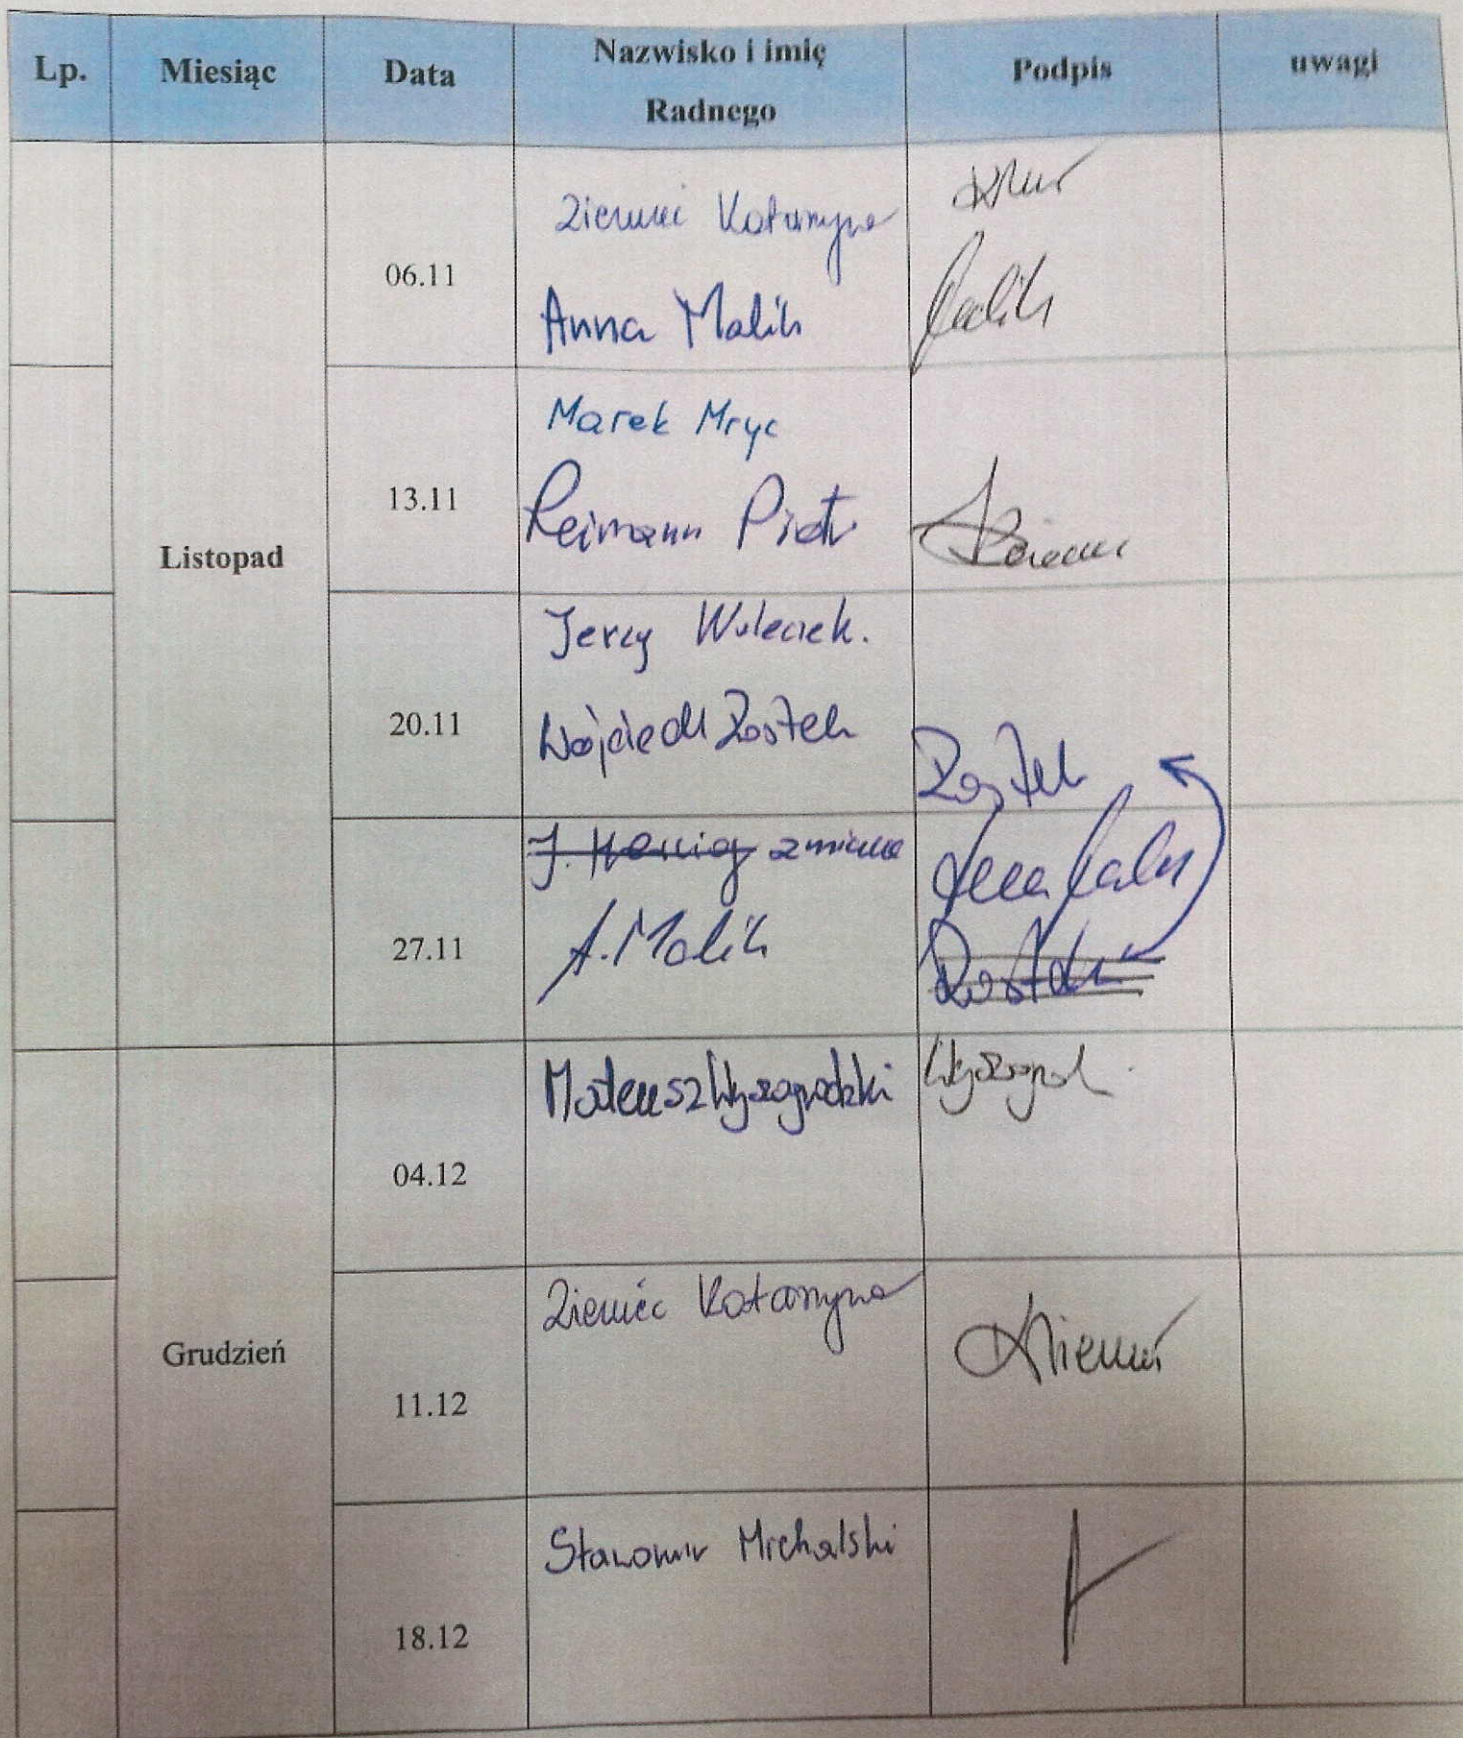 Lp. Miesiąc Data Nazwisko i imię Radnego Podpis uwagi
Listopad
06.11
Ziemiec Katarzyna
Anna Malik
Malik
13.11
Marek Mryc
Reimann Piotr
20.11
Jerzy
Wojciech Rostek
Rostek
27.11
J. zmiana
A. Malik
Rostek
Grudzień
04.12
Mateusz Wyszogrodzki
Wyszogrod
11.12
Ziemiec Katarzyna
18.12
Sławomir Michalski